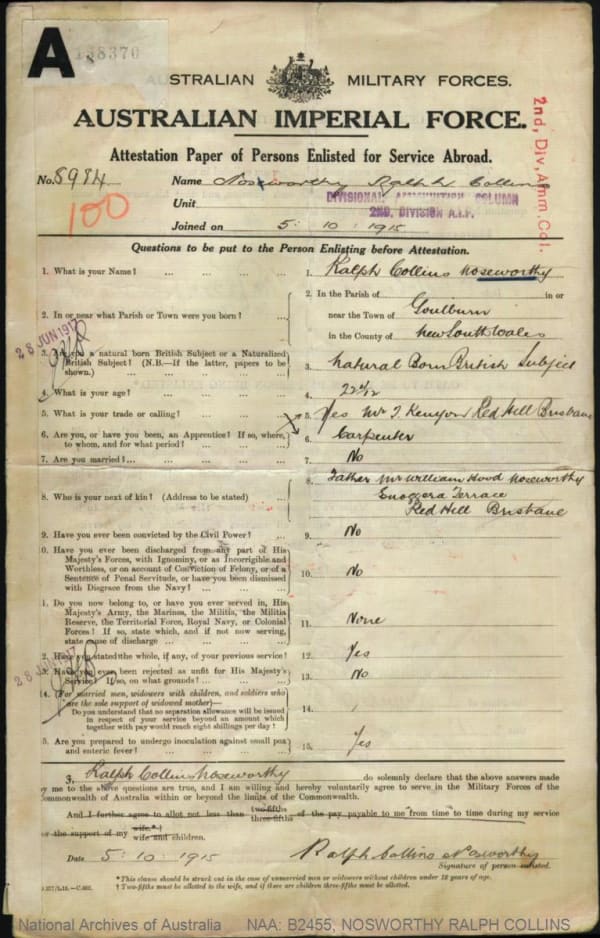 A
138370
AUSTRALIAN MILITARY FORCES.
AUSTRALIAN IMPERIAL FORCE.
2nd, Div, Amm, Col.
Attestation Paper of Persons Enlisted for Service Abroad.
No. 8984 Name Nosworthy Ralph Collins
100
Unit DIVISIONAL AMMUNITION COLUMN
2ND. DIVISION A.I.F.
Joined on 5 : 10 : 1915
Questions to be put to the Person Enlisting before Attestation.
1. What is your Name? ... ... ... ... 1. Ralph Collins Noseworthy
2. In or near what Parish or Town were you born? ... 2. In the Parish of in or
near the Town of Goulburn
in the County of New South Wales
28 JUN 1917
3. Are you a natural born British Subject or a Naturalized
British Subject? (N.B.—If the latter, papers to be
shown.) ... ... ... ... 3. Natural Born British Subject
4. What is your age? ... ... ... ... 4. 22
5. What is your trade or calling? ... ... ... 5. Yes Mr J. Kenyon Red Hill Brisbane
6. Are you, or have you been, an Apprentice? If so, where,
to whom, and for what period? ... ... 6. Carpenter
7. Are you married? ... ... ... ... 7. No
8. Who is your next of kin? (Address to be stated) ... 8. Father Mr William Hood Noseworthy
Enoggera Terrace
Red Hill Brisbane
9. Have you ever been convicted by the Civil Power? ... 9. No
0. Have you ever been discharged from any part of His
Majesty's Forces, with Ignominy, or as Incorrigible and
Worthless, or on account of Conviction of Felony, or of a
Sentence of Penal Servitude, or have you been dismissed
with Disgrace from the Navy? ... ... ... 10. No
1. Do you now belong to, or have you ever served in, His
Majesty's Army, the Marines, the Militia, the Militia
Reserve, the Territorial Force, Royal Navy, or Colonial
Forces? If so, state which, and if not now serving,
state cause of discharge ... ... ... 11. None
2. Have you stated the whole, if any, of your previous service? 12. Yes
28 JUN 1917
3. Have you ever been rejected as unfit for His Majesty's
Service? If so, on what grounds? ... ... 13. No
14. (For married men, widowers with children, and soldiers who
are the sole support of widowed mother)—
Do you understand that no separation allowance will be issued
in respect of your service beyond an amount which
together with pay would reach eight shillings per day? 14.
5. Are you prepared to undergo inoculation against small pox
and enteric fever? ... ... ... ... 15. Yes
I, Ralph Collins Noseworthy do solemnly declare that the above answers made
by me to the above questions are true, and I am willing and hereby voluntarily agree to serve in the Military Forces of the
Commonwealth of Australia within or beyond the limits of the Commonwealth.
And I further agree to allot not less than two-fifths three-fifths of the pay payable to me from time to time during my service
for the support of my wife.*† wife and children.
Date 5 : 10 : 1915 Ralph Collins Nosworthy
Signature of person enlisted.
*This clause should be struck out in the case of unmarried men or widowers without children under 18 years of age.
† Two-fifths must be allotted to the wife, and if there are children three-fifths must be allotted.
National Archives of Australia NAA: B2455, NOSWORTHY RALPH COLLINS